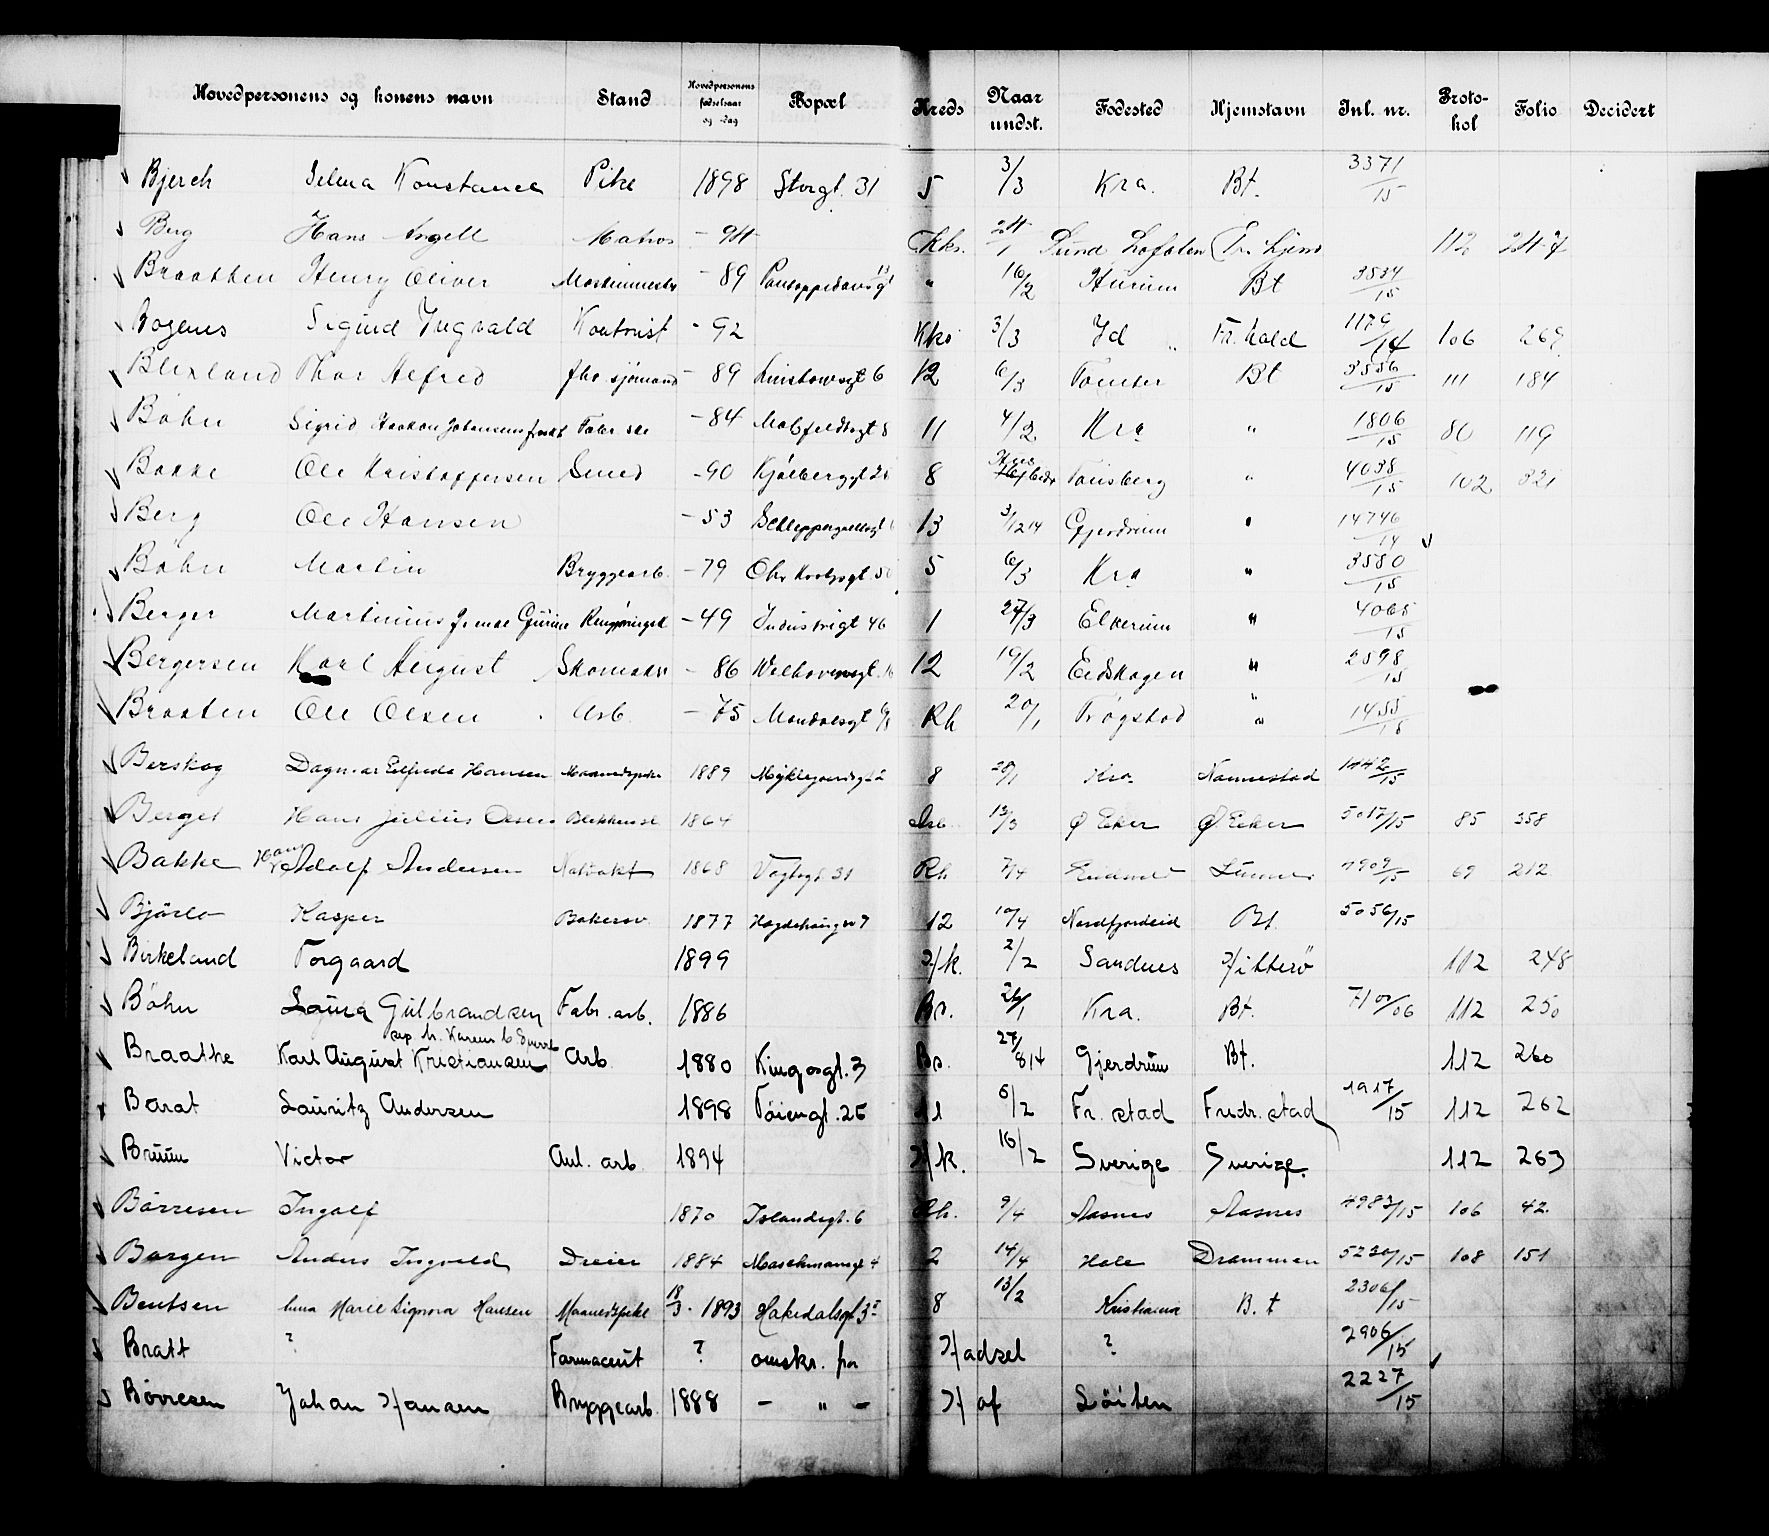 Hovedpersonens og konens navn Stand Hovedpersonens fødselsaar og -dag Bopæl Kreds Naar undst. Fødested Hjemstavn Inl. nr. Protokol Folio Decidert
Bjerch Selma Konstance Pike 1898 Storgt. 31 5 3/3 Kra. Bt. 3371/15
Berg Hans Angell Matros - 94 Kks. 24/1 Sund Lofoten 112 247
Braathen Henry Oliver - 89 " 16/2 Hurum Bt 3534/15
Bogenes Sigurd Ingvald Kontorist - 92 Kks 3/3 Id Fr. hald 1179/14 106 269
Blixland Thor Alfred fhv. sjömand - 89 6 12 6/3 Tomter Bt 3556/15 111 184
Böhn Sigrid Haakon Johansens Fabr. - 84 11 4/2 Kra " 1806/15 80 119
Bakke Ole Kristoffersen Smed - 90 Kjølberggt 8 Tønsberg " 4038/15 102 321
Berg Ole Hansen - 53 Schleppegrellsgt 13 3/12 14 Gjerdrum " 14746/14
Böhn Martin Bryggearb. - 79 5 6/3 Kra " 3580/15
Berger Martinius - 49 Industrigt 46 1 27/3 " 4065/15
Bergersen Karl August Skomaker - 86 Welhavensgt. 12 19/2 Eidskogen " 2598/15
Braaten Ole Olsen Arb. - 75 Mandalsgt Rh 20/1 Trøgstad " 1455/15
Berskog Dagmar Elfrida Hansen Maanedspike 1889 Myklegaardsgt 2 8 28/1 Kra Nannestad 1142/15
Berget Hans Julius Olsen Blikkensl. 1864 13/3 Ø Eker Ø Eker 5017/15 85 358
Bakke Hans Adolf Andersen Natvakt 1868 Vogtsgt 31 Rh 7/4 Lunner 4909/15 69 212
Bjørlo Kasper Bakersv. 1877 Hegdehaugsv 7 12 10/4 Nordfjordeid Bt. 5056/15
Birkeland Torgaard 1899 Hk. 2/2 Sandnes Hitterö 112 248
Böhn Laura Gulbrandsen Fabr. arb. 1886 Bs. 26/1 Kra. Bt. 7100/06 112 250
Braathe Karl August Kristiansen Arb. 1880 Kingosgt. 3 Bs. 27/8 14 Gjerdrum Bt. 112 260
Barat Lauritz Andersen 1898 Töiengt. 26 11 6/2 Fr. stad Fredr. stad 1917/15 112 262
Bruun Victor Anl. arb. 1894 Hk. 16/2 Sverige Sverige 112 263
Børresen Ingolf 1870 Islandsgt. 6 Rh. 9/4 Aasnes Aasnes 4983/15 106 42
Borgen Anders Ingvald Dreier 1884 Maschmansgt 4 2 14/4 Hole Drammen 5230/15 108 151
Bentsen Anna Marie Signora Hansen Maanedspike 18/3 . 1893 Hakedalsgt 3 8 13/2 Kristiania B. t 2306/15
Bratt ? Farmaceut ? ønskr. fra Hadsel ? 2906/15
Børresen Johan Hansen Bryggearb. 1888 - " - H af Löiten 2227/15